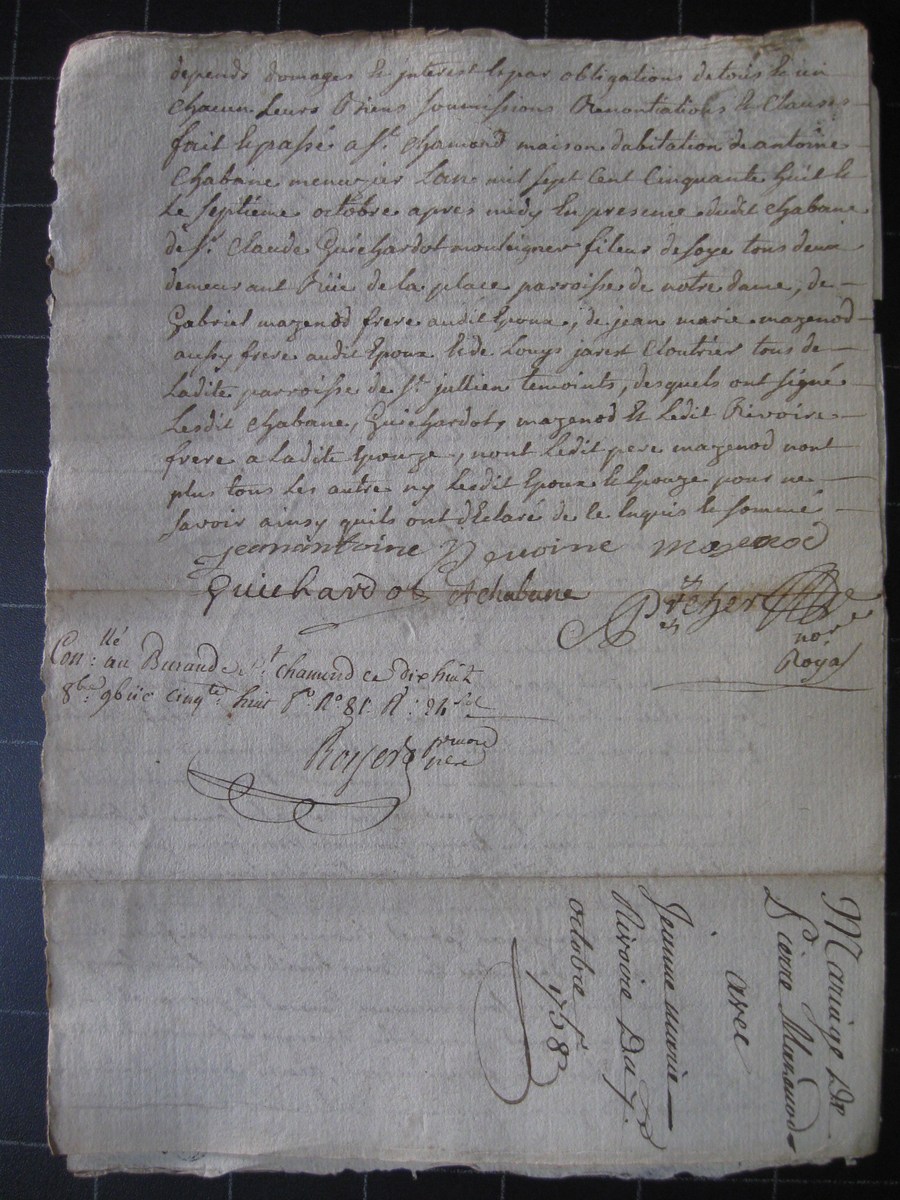 depends domages et interest et par obligations de tous et un
chacun leurs Biens soumissions Renontiations et clauses
fait et passé a St. chamond maison dabitation de antoine
Chabane menuzier Lan mil sept Cent Cinquante huit et
Le septieme octobre apres midy En presence dudit Chabane
de Sr. Claude Guichardot moulignier fileur de soye tous deux
demeurant Rüe de la place parroisse de notre dame, de
Gabriel mazenod frere audit Epoux, de jean marie mazenod
aussy frere audit Epoux Et de Louys jarest Cloutrier tous de
Ladite parroisse de St. jullien temoints, desquels ont signé
Lesdit Chabane, Guichardot, mazenod Et Ledit Rivoire
frere a Ladite Epouze, nont Ledit pere mazenod nont
plus tous Les autre ny Lesdit Epoux Et Epouze pour ne
Savoir ainsy quils ont déclaré de ce Enquis Et sommé
jeanantoine Rivoire mazenod
Guichardot A chabane
nore
Royal
Conllé: au Bureau de St. chamond ce dix huit
8bre 1758 cinqte huit fo. Ro 81. R: 24 sol
Mariage De
Pierre Mazenod
avec
Jeanne marie
Rivoire Du 7.
octobre
1758